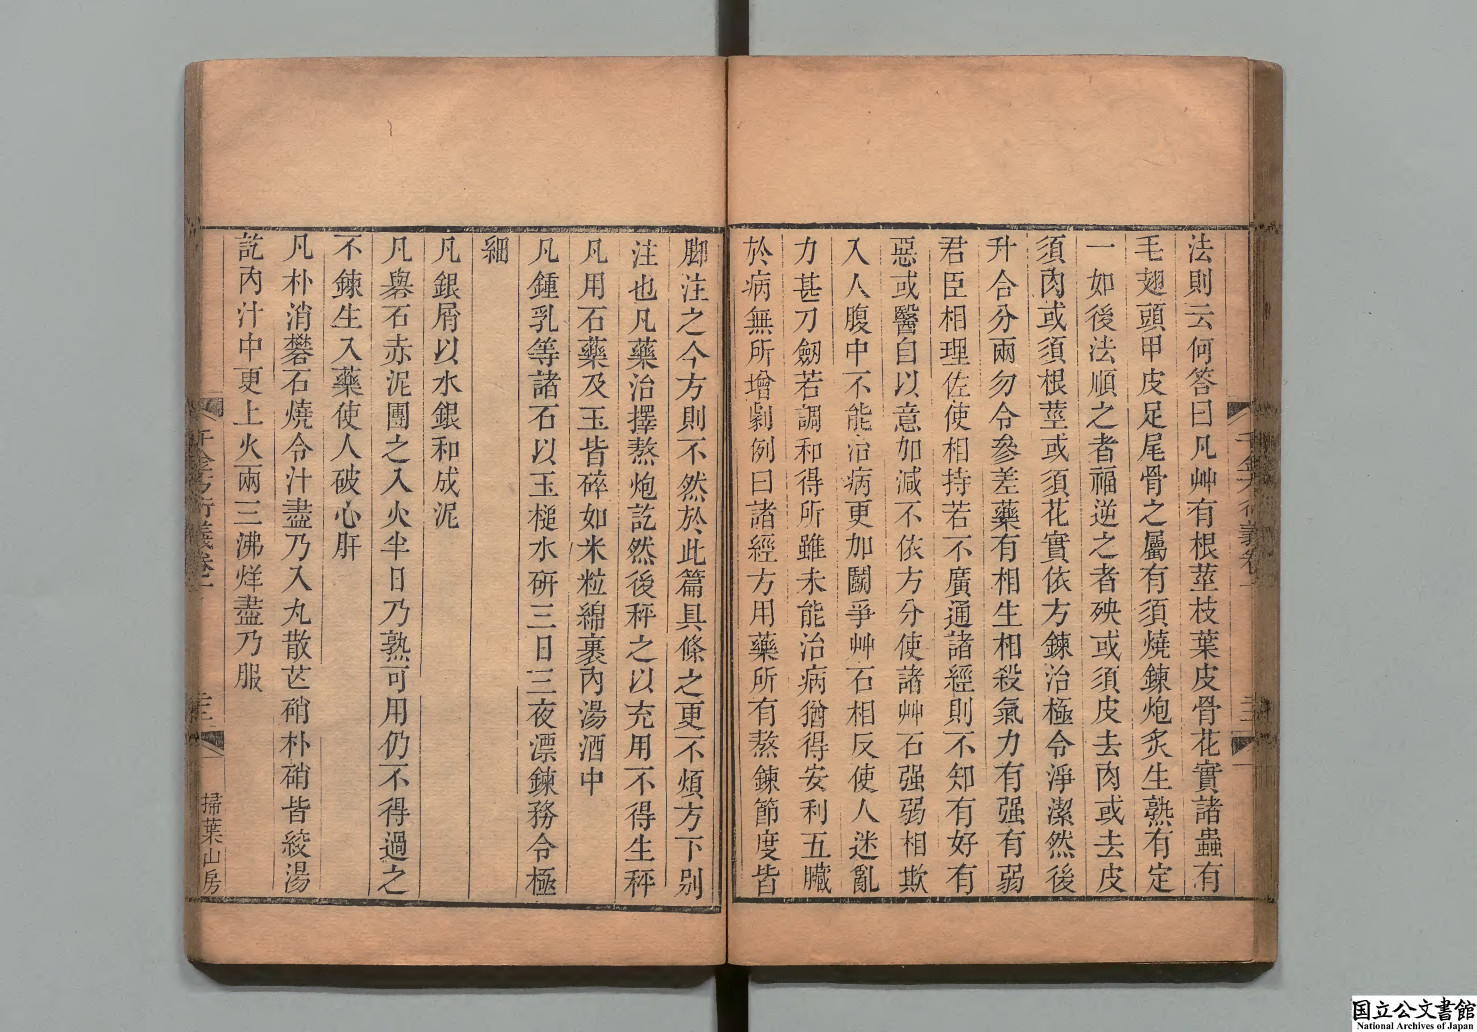 法則云何答曰凡艸有根莖枝葉皮骨花實諸蟲有
毛翅頭甲皮足尾骨之屬有須燒鍊炮炙生熟有定
一如後法順之者福逆之者殃或須皮去肉或去皮
須肉或須根莖或須花實依方鍊治極令淨潔然後
升合分兩勿令參差藥有相生相殺氣力有强有弱
君臣相理佐使相持若不廣通諸經則不知有好有
惡或醫自以意加減不依方分使諸艸石强弱相欺
入人腹中不能治病更加鬭爭艸石相反使人迷亂
力甚刀劒若調和得所雖未能治病猶得安利五臟
於病無所增劇例曰諸經方用藥所有熬鍊節度皆
脚注之今方則不然於此篇具條之更不煩方下别
注也凡藥治擇熬炮訖然後秤之以充用不得生秤
凡用石藥及玉皆碎如米粒綿裹內湯酒中
凡鍾乳等諸石以玉槌水研三日三夜漂鍊務令極
細
凡銀屑以水銀和成泥
凡礜石赤泥團之入火半日乃熟可用仍不得過之
不鍊生入藥使人破心肝
凡朴消礬石燒令汁盡乃入丸散芒硝朴硝皆絞湯
訖內汁中更上火兩三沸烊盡乃服
千金方衍義卷一
掃葉山房
国立公文書館
National Archives of Japan